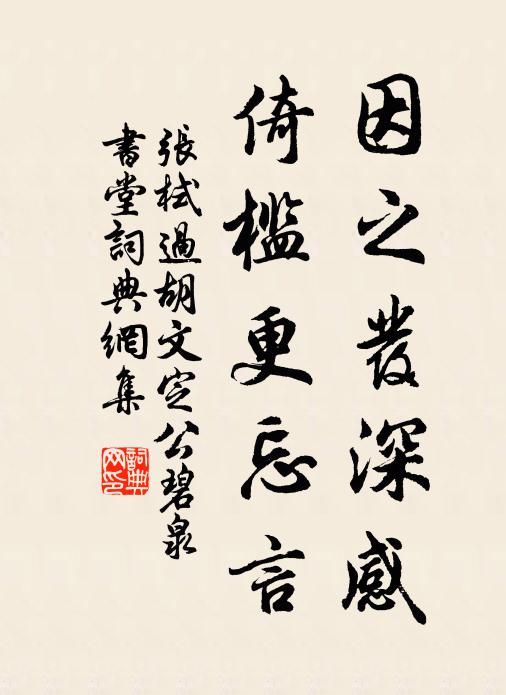 因之發深感
倚檻更忘言
張栻過胡文定公碧泉
書堂詞典網集
詞典
网印